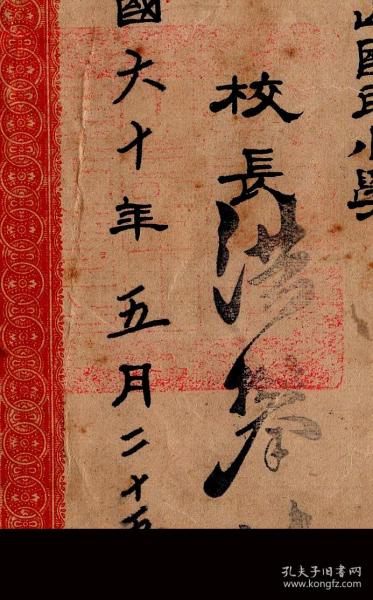 國民小學
校長洪
國六十年五月二十五
孔夫子旧书网
www.kongfz.com